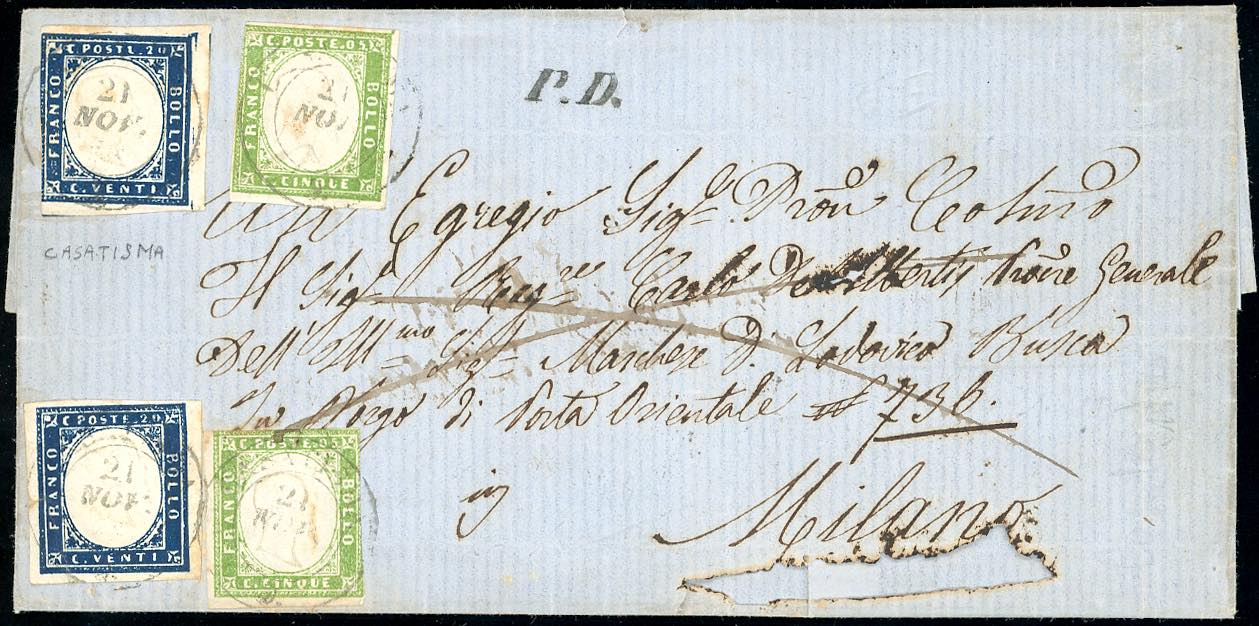 C. POSTE. 20
FRANCO
BOLLO
C. VENTI
21
NOV.
C. POSTE. 05
FRANCO
BOLLO
C. CINQUE
21
NOV
P.D.
CASATISMA
Egregio Sig.e Pron
Il Sig.r Rag.re Carlo Generale
Dell' Ill.mo Sig.r Marchese D. Lodovico Busca
Borgo di Porta Orientale N 736.
in
Milano
C. POSTE. 20
FRANCO
BOLLO
C. VENTI
21
NOV.
C. POSTE. 05
FRANCO
BOLLO
C. CINQUE
21
NOV